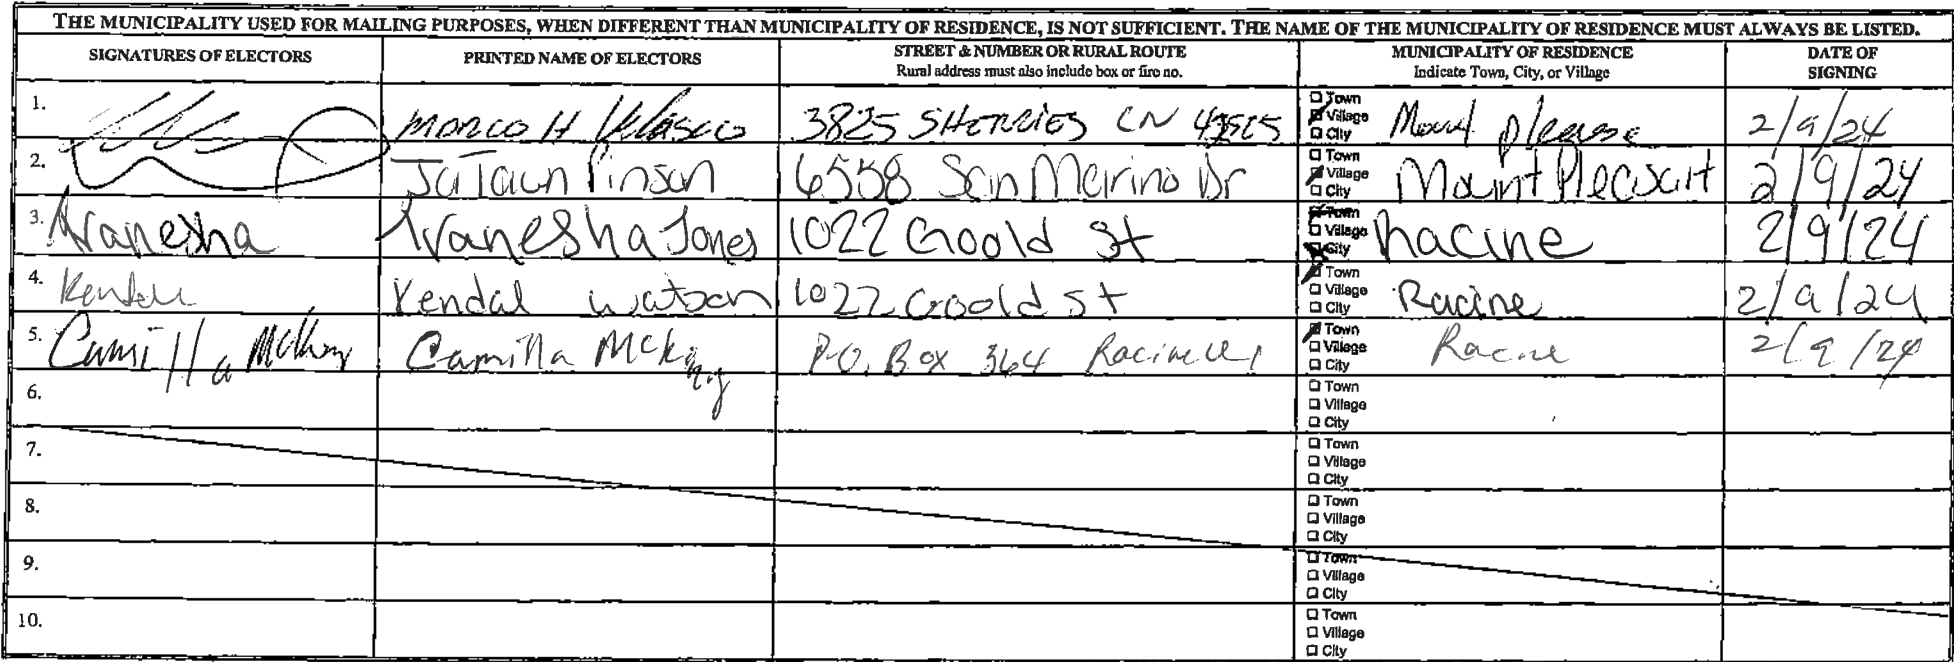 THE MUNICIPALITY USED FOR MAILING PURPOSES, WHEN DIFFERENT THAN MUNICIPALITY OF RESIDENCE, IS NOT SUFFICIENT. THE NAME OF THE MUNICIPALITY OF RESIDENCE MUST ALWAYS BE LISTED.
SIGNATURES OF ELECTORS PRINTED NAME OF ELECTORS STREET & NUMBER OR RURAL ROUTE MUNICIPALITY OF RESIDENCE DATE OF
Rural address must also include box or fire no. Indicate Town, City, or Village SIGNING
1. Marco H Velasco 3825 LN Town Village City Mount please 2/9/24
2. JaTaun Pinson 6558 San Marino Dr Town Village City Mount Pleasant 2/9/24
3. Tranesha Tranesha Jones 1022 Goold St Town Village City Racine 2/9/24
4. Kendal Kendal Watson 1022 Goold St Town Village City Racine 2/9/24
5. Camilla Camilla P.O. Box 364 Racine Town Village City Racine 2/9/24
6. Town
Village
City
7. Town
Village
City
8. Town
Village
City
9. Town
Village
City
10. Town
Village
City